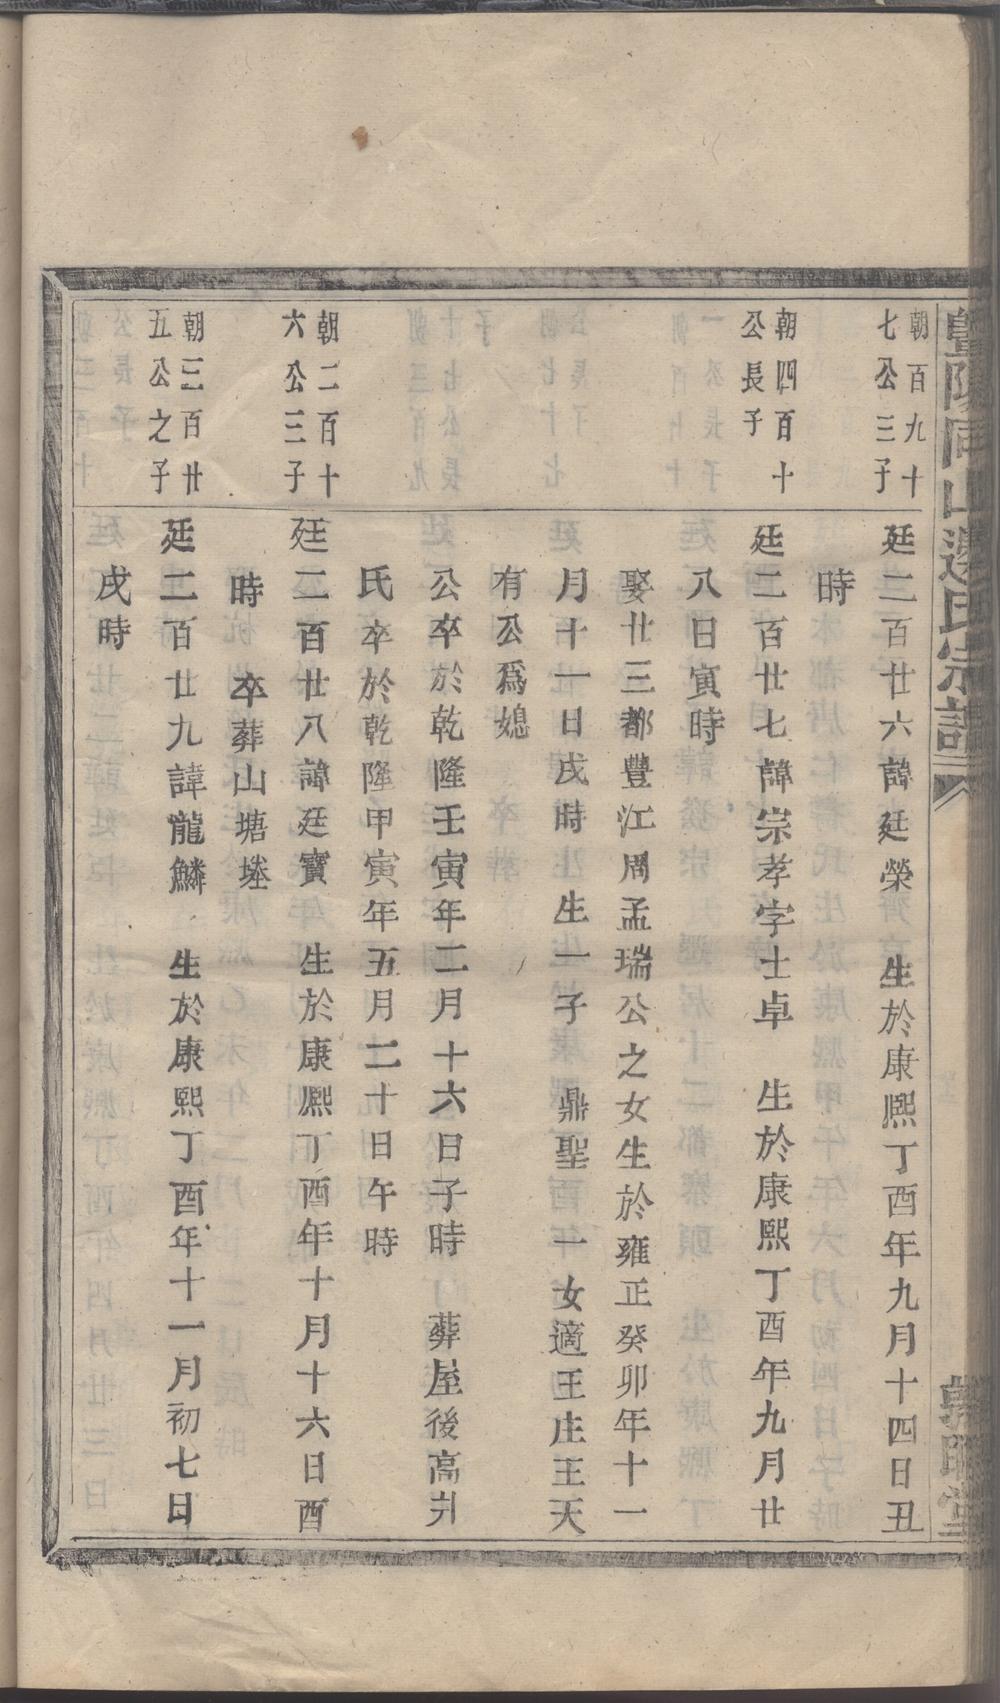 暨陽同山邊氏宗譜
朝百九十
七公三子
廷二百廿六諱廷榮 生於康熙丁酉年九月十四日丑
時
朝四百十
公長子
廷二百廿七諱宗孝字士卓 生於康熙丁酉年九月廿
八日寅時
娶廿三都豐江周孟瑞公之女生於雍正癸卯年十一
月十一日戌時 生一子 鼎聖 一女適王庄王天
有公爲媳
公卒於乾隆壬寅年二月十六日子時 葬屋後高爿
氏卒於乾隆甲寅年五月二十日午時
朝二百十
六公三子
廷二百廿八諱廷寶 生於康熙丁酉年十月十六日酉
時 卒葬山塘塂
朝三百廿
五公之子
廷二百廿九諱龍鱗 生於康熙丁酉年十一月初七日
戌時